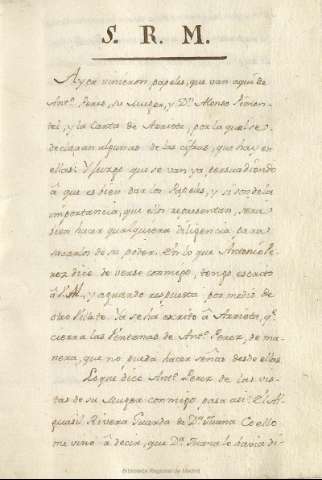 S. R. M.
Ayer vinieron, papeles, que van aqui de
Ant.º Perez, su Muger, y D.n Alonso Pimen-
tel, y la Carta de Arrieta, por la qual se
declaran algunas de las cifras, que hay en
ellas: Y Juzgo que se van ya persuadiendo
à que es bien dar los Papeles, y si son de la
importancia, que ellos representan, será
bien hacer qualquiera diligencia, para
sacarlos de su poder. En lo que Antonio Pe-
rez dice de verse conmigo, tengo escrito
à S.M. y aguardo respuesta por medio de
otro Pilato. Ya se há escrito à Arrieta, q.e
cierre las Ventanas de Ant.º Perez, de ma-
nera, que no pueda hacer señas desde ellas.
Lo que dice Ant.º Perez de las vis-
tas de su Muger conmigo, pasa asi: El Al-
guacil Rivera Guarda de D.ª Juana Coello
me vino à decir, que D.ª Juana lo havia di-
Biblioteca Regional de Madrid